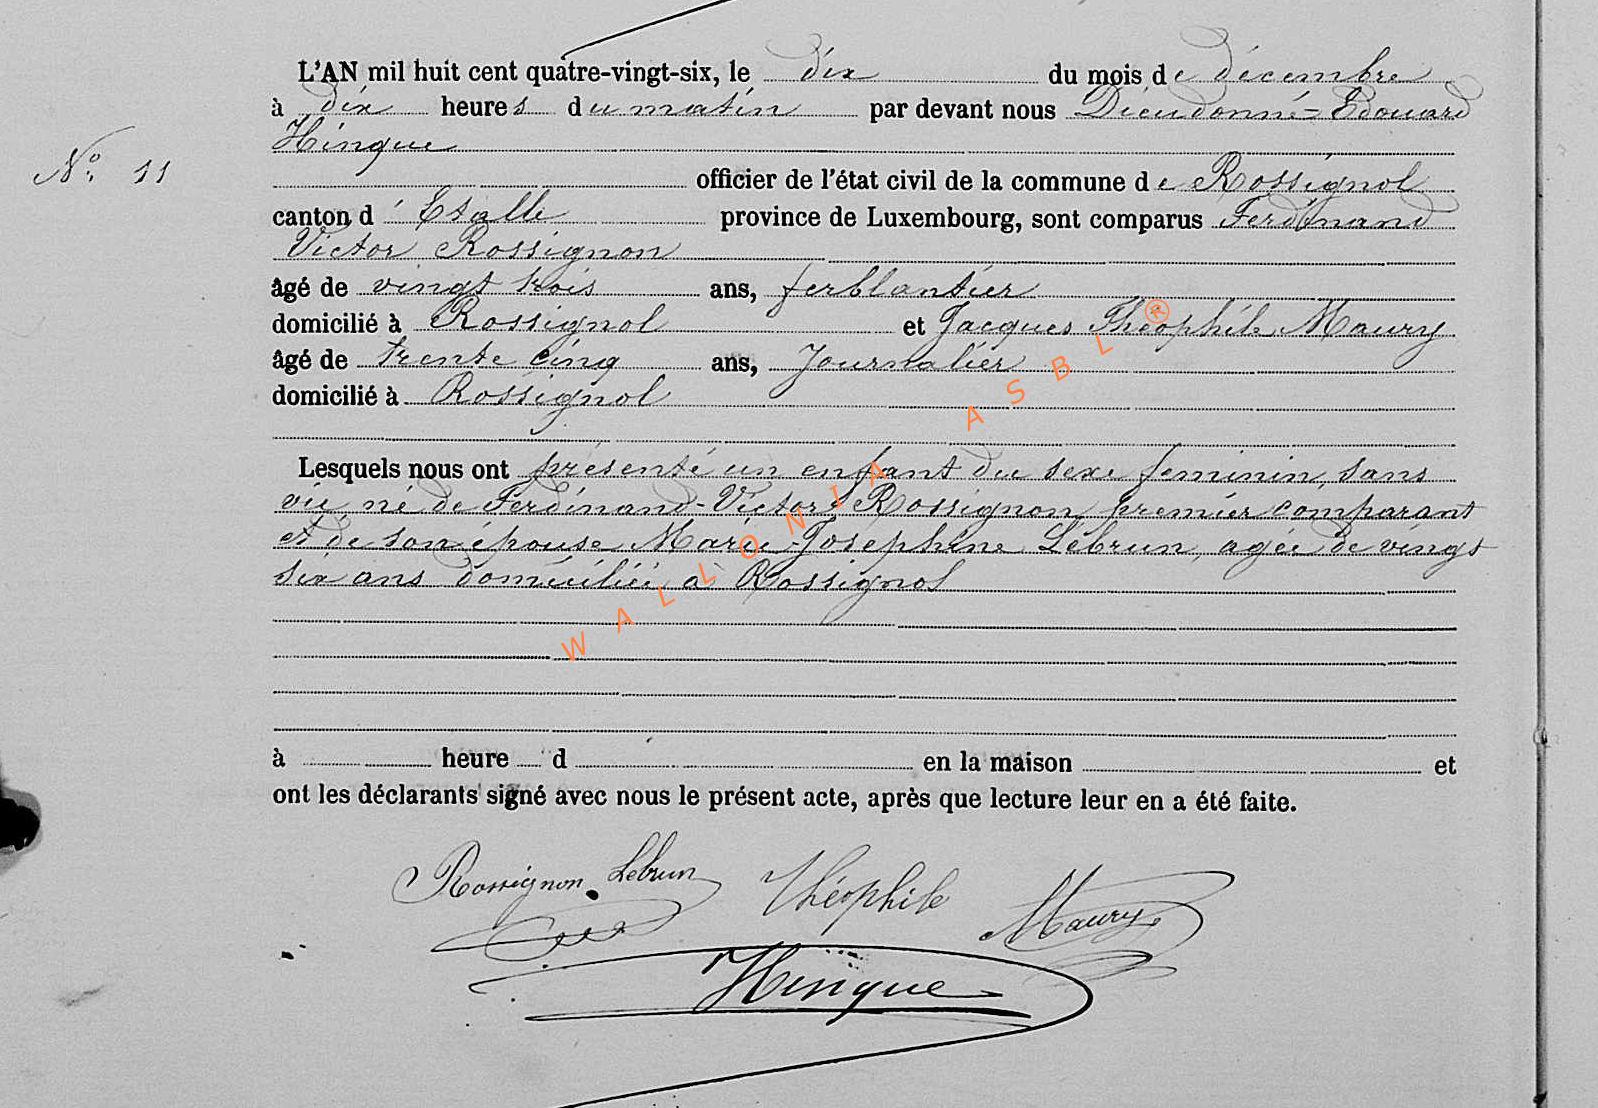 L'AN mil huit cent quatre-vingt-six, le dix du mois de décembre
à dix heures du matin par devant nous Dieudonné=Edouard
Hinque
Nº 11
officier de l'état civil de la commune de Rossignol
canton d'Etalle province de Luxembourg, sont comparus Ferdinand
Victor Rossignon
âgé de vingt trois ans, ferblantier
domicilié à Rossignol et Jacques Théophile Maury
âgé de trente cinq ans, Journalier
domicilié à Rossignol
Lesquels nous ont présenté un enfant du sexe feminin, sans
vie, né de Ferdinand-Victor Rossignon premier comparant
et de son épouse Marie-Josephine Lebrun, agée de vingt
six ans domiciliée à Rossignol
à heure d en la maison et
ont les déclarants signé avec nous le présent acte, après que lecture leur en a été faite.
Rossignon Lebrun Théophile Maury
Hinque
WALLONIA ASBL ®